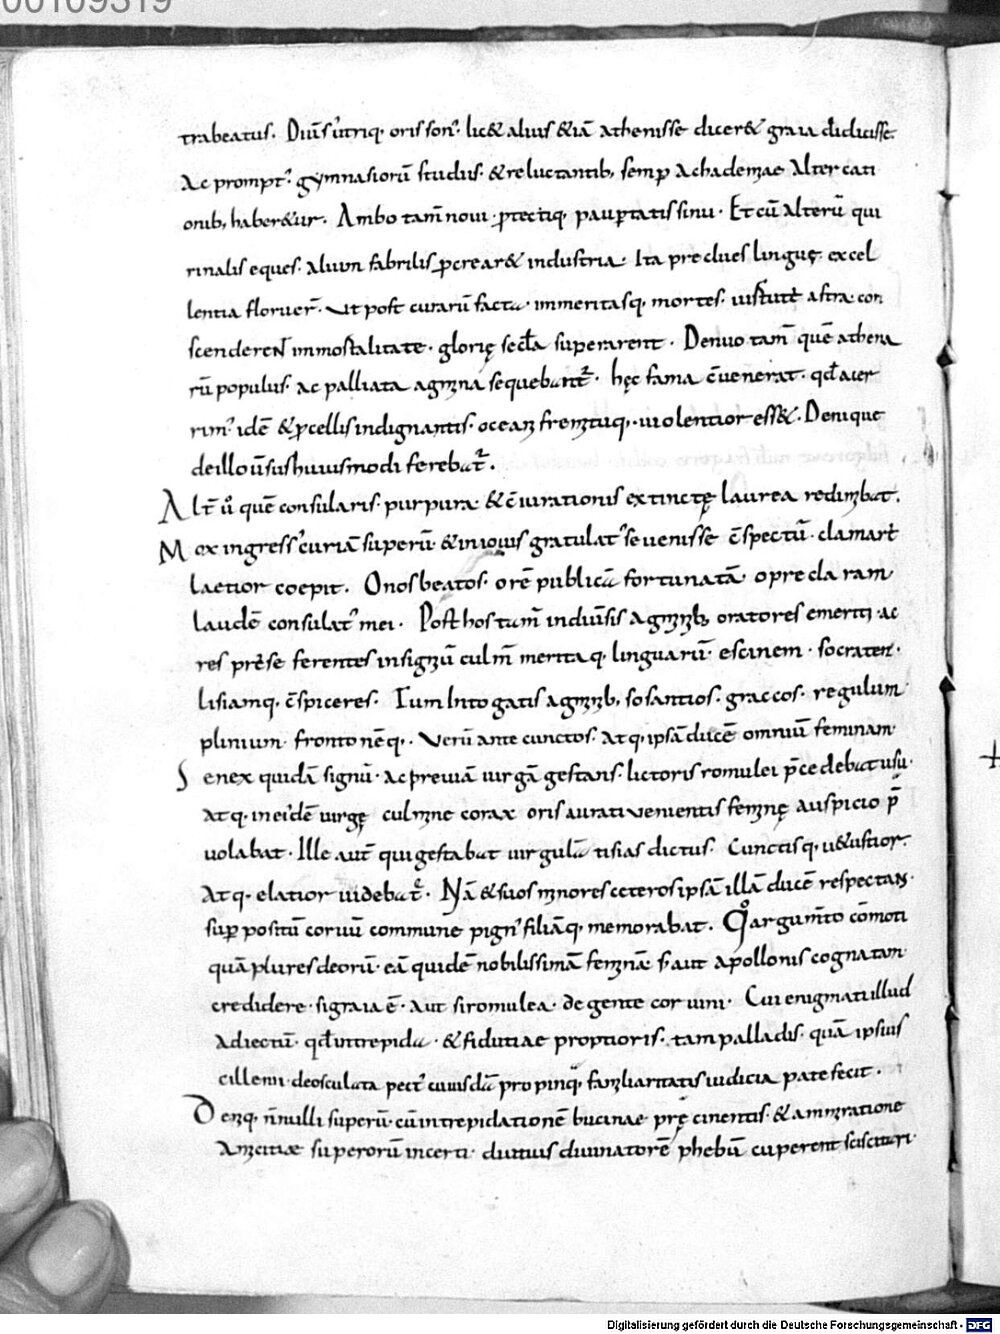 00109319
trabeatus. Diu͞s᾽ utriq· oris son᾽. lic& alius &iā athenisse dicer& graia didicisse.
Ac prompt᾽ gymnasiorū studiis· &reluctantib; semp achademiae alter cati
onib; haber&ur. Ambo tam̄ noui ꝓtectiq· paup̱tatis sinu· Et cū alterū qui
rinalis eques· aliun fabrilis ꝓcrear& industria· Ita preclues linguę· excel
lentia floruer̄· ut post curarū facta· immeritasq· mortes· astra con
scenderent immortalitate· glorię sec̄la superarent· Denuo tam̄ quē athena
rū populus· ac palliata agmina sequebant᾽· hęc fama c̄uenerat· qd̄ acer
rim᾽ idē &ꝓcellis indignantis· oceani fremituq;· uiolentior ess&· Denique
de illo ūsus huiusmodi ferebat᾽.
Alt̄ ů quē consularis· purpura· &c̄iurationis extinctę laurea redimibat.
Mox ingress᾽ curiā superū &in iouis gratulat᾽ se uenisse c̄spectū· clamare
laetior coepit. O nos beatos· o rē publicā fortunatā o preclaram
laudē consulat᾽ mei· Post hos tum̄ indūsis agminib; oratores emeriti· ac
res prese ferentes insigniū culm̄ meritaq· linguarū· escinem· socraten·
lisiamq· c̄spiceres· Tum Into gatis agminib; sosantios· graccos· regulum
plinium· frontonēq·. uerū ante cunctos· atq· ipsā ducē omniū feminam·
Senex quidā signū· ac preuiā uirgā gestans· lictoris romulei p̄cedebat usu·
atq· in eidē uirgę culmine corax oris aurati uenientis feminę auspicio p̄
uolabat· Ille aut̄ qui gestabat uirgulā tisias dictus· Cunctisq· u&ustior·
atq· elatior uidebat᾽. Nā &suos minores ceteros ipsā illā ducē respectans·
sup positū coruū commune pign᾽ filiāq· memorabat. Qo argum̄to cōmoti
quā plures deorū· eā quidē nobilissimā feminā s; aut apollonis cognatam·
credidere· si graia ē· aut si romulea· de gente coruini· Cui enigmati illud
adiectū· qd̄ intrepida· &fidutiae proptioris· tam palladis· quā ipsius
cilleni· deosculata pect᾽ cuiusdā propinq̨· familiaritatis iudicia patefecit·
Deniq· n̄nulli superū· cū intrepidationē bucinae pręcinentis· &ammiratione
amicitiae superorū incerti· diutius diuinatorē phebū cuperent sciscitari·
Digitalisierung gefördert durch die Deutsche Forschungsgemeinschaft - DFG